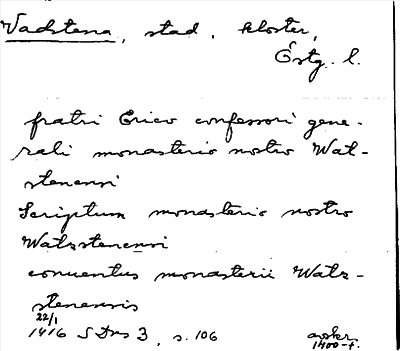 Vadstena, stad, kloster,
Östg. l.
fratri Erico confessori gene-
rali monasterio nostro Wat-
stenensi
Scriptum monasterio nostro
Watzstenensi
conuentus monasterii Watz-
stenensis
22/1
1416 SDns 3, s. 106
avskr.
1400-t.